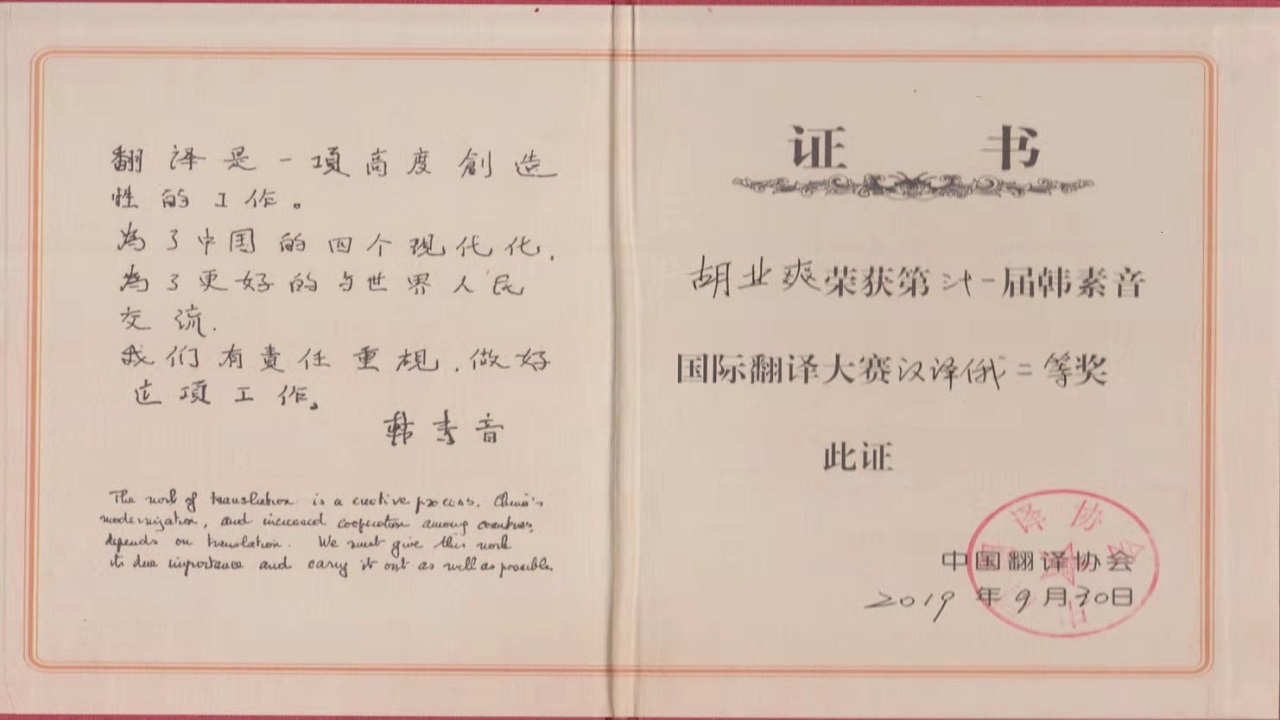 翻译是一項高度創造
性的工作。
為了中国的四个现代化,
為了更好的与世界人民
交流.
我们有責任重視.做好
这项工作。
韩素音
The work of translation is a creative process. China's
modernization, and increased cooperation among countries,
depends on translation. We must give this work
its due importance and carry it out as well as possible.
证书
胡业爽荣获第卅一届韩素音
国际翻译大赛汉译俄二等奖
此证
中国翻译协会
2019年9月30日